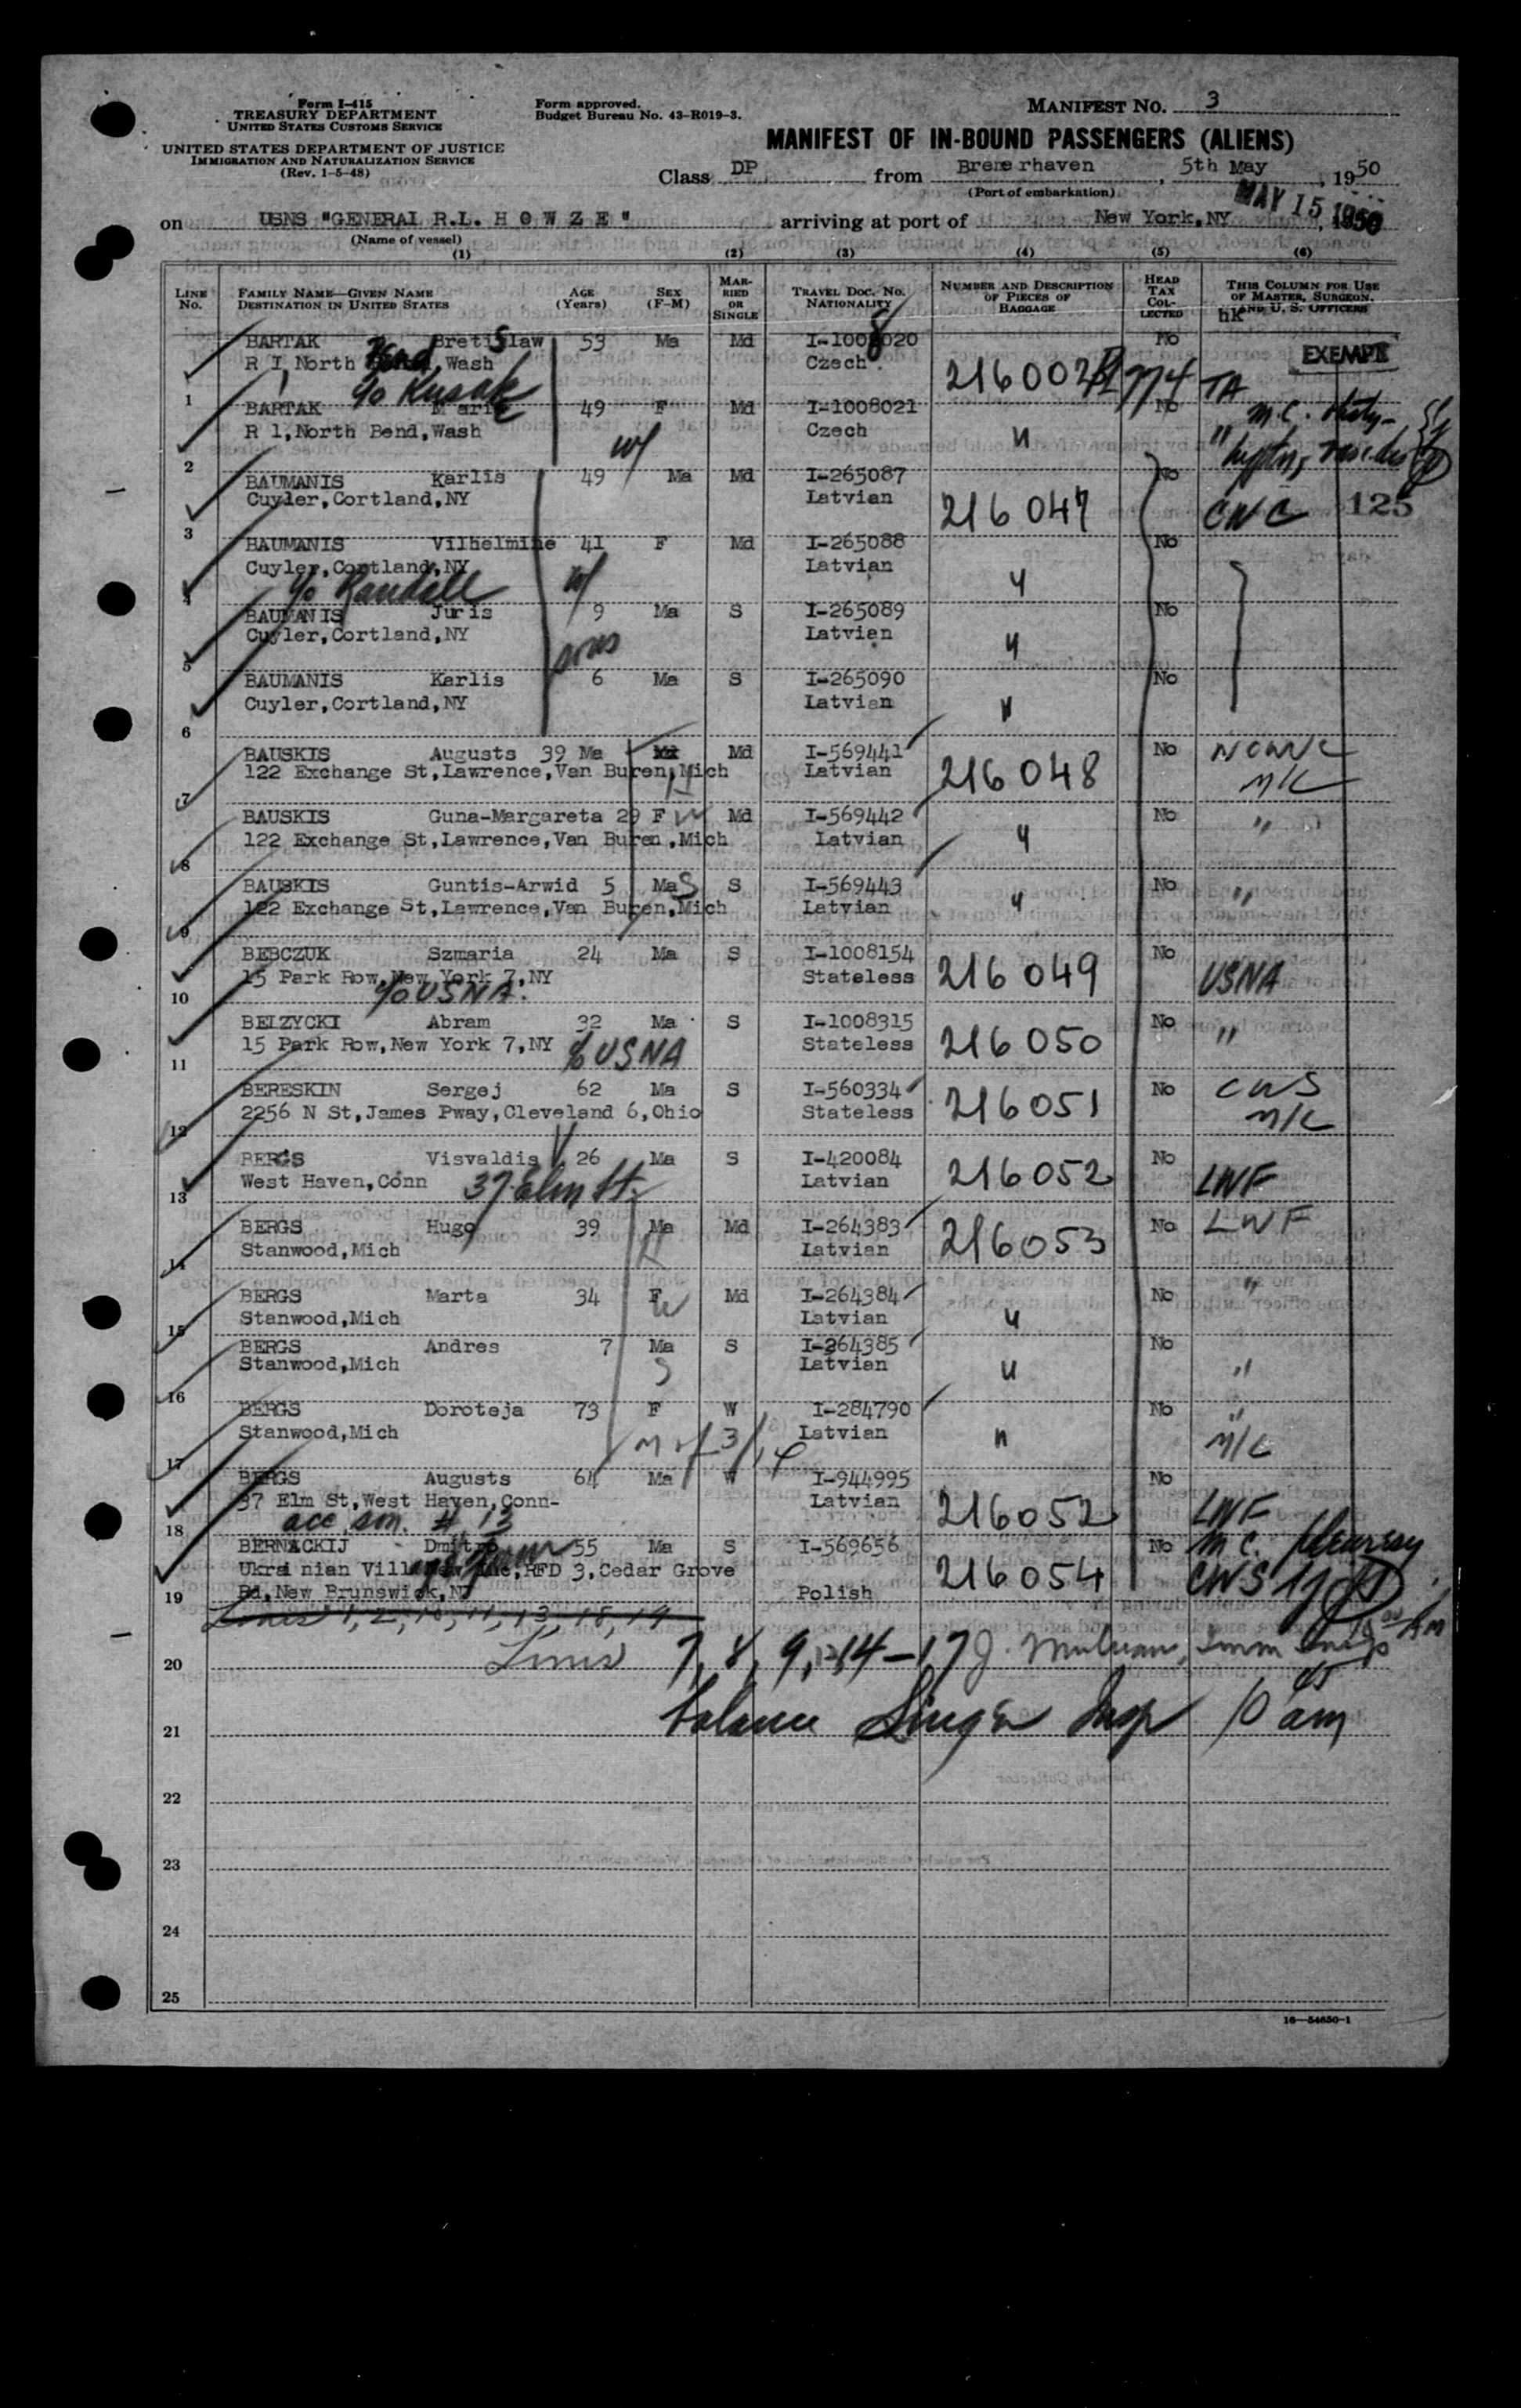 Form I-415
TREASURY DEPARTMENT
UNITED STATES CUSTOMS SERVICE
UNITED STATES DEPARTMENT OF JUSTICE
IMMIGRATION AND NATURALIZATION SERVICE
(Rev. 1-5-48)
Form approved.
Budget Bureau No. 43-R019-3.
MANIFEST NO. 3
MANIFEST OF IN-BOUND PASSENGERS (ALIENS)
Class DP from Bremerhaven, 5th May, 1950
(Port of embarkation)
MAY 15 1950
on USNS "GENERAL R.L. HOWZE" arriving at port of New York,NY, 1950
(Name of vessel)
(1) (2) (3) (4) (5) (6)
LINE NO. FAMILY NAME—GIVEN NAME DESTINATION IN UNITED STATES AGE (Years) SEX (F-M) MARRIED OR SINGLE TRAVEL DOC. NO. NATIONALITY NUMBER AND DESCRIPTION OF PIECES OF BAGGAGE HEAD TAX COLLECTED THIS COLUMN FOR USE OF MASTER, SURGEON, AND U. S. OFFICERS
hk
EXEMPT
BARTAK Bretislaw 53 Ma Md I-1008020 No
R 1,North Bend,Wash Czech 216002 TA
1 c/o Kusak
BARTAK Marie 49 F Md I-1008021 No m.c.
R 1,North Bend,Wash Czech " "
2 w/
BAUMANIS Karlis 49 Ma Md I-265087 No
Cuyler,Cortland,NY Latvian 216047 CNC 125
3
BAUMANIS Vilhelmine 41 F Md I-265088 No
Cuyler,Cortland,NY Latvian "
4 c/o Randell w/
BAUMANIS Juris 9 Ma S I-265089 No
Cuyler,Cortland,NY Latvian "
5 sons
BAUMANIS Karlis 6 Ma S I-265090 No
Cuyler,Cortland,NY Latvian "
6
BAUSKIS Augusts 39 Ma Md I-569441 No NCWC
122 Exchange St,Lawrence,Van Buren,Mich H Latvian 216048 M/C
7
BAUSKIS Guna-Margareta 29 F W Md I-569442 No "
122 Exchange St,Lawrence,Van Buren,Mich Latvian "
8
BAUSKIS Guntis-Arwid 5 Ma S S I-569443 No "
122 Exchange St,Lawrence,Van Buren,Mich Latvian "
9
BEBCZUK Szmaria 24 Ma S I-1008154 No
15 Park Row,New York 7,NY Stateless 216049 USNA
10 c/o USNA.
BELZYCKI Abram 32 Ma S I-1008315 No "
15 Park Row,New York 7,NY c/o USNA Stateless 216050
11
BERESKIN Sergej 62 Ma S I-560334 No CWS
2256 N St,James Pway,Cleveland 6,Ohio Stateless 216051 M/C
12
BERGS Visvaldis 26 Ma S I-420084 No
West Haven,Conn 37 Elm St. Latvian 216052 LWF
13
BERGS Hugo 39 Ma Md I-264383 No LWF
Stanwood,Mich H Latvian 216053
14
BERGS Marta 34 F Md I-264384 No "
Stanwood,Mich W Latvian "
15
BERGS Andres 7 Ma S I-264385 No
Stanwood,Mich S Latvian " "
16
BERGS Doroteja 73 F W I-284790 No "
Stanwood,Mich Latvian " M/C
17
BERGS Augusts 64 Ma W I-944995 No
37 Elm St,West Haven,Conn- Latvian 216052 LWF
18 acc. son. # 13
BERNACKIJ Dmitro 55 Ma S I-569656 No M C.
Ukrainian Village,RFD 3,Cedar Grove 216054 CWS
19 Rd,New Brunswick,NJ Polish
Lines 1, 2, 10, 11, 13, 18, 19
20 Lines 7, 8, 9, 12, 14-17 J. Mulvan, Imm Insp
21 balance Singer Insp 10 am
22
23
24
25
16—54650-1